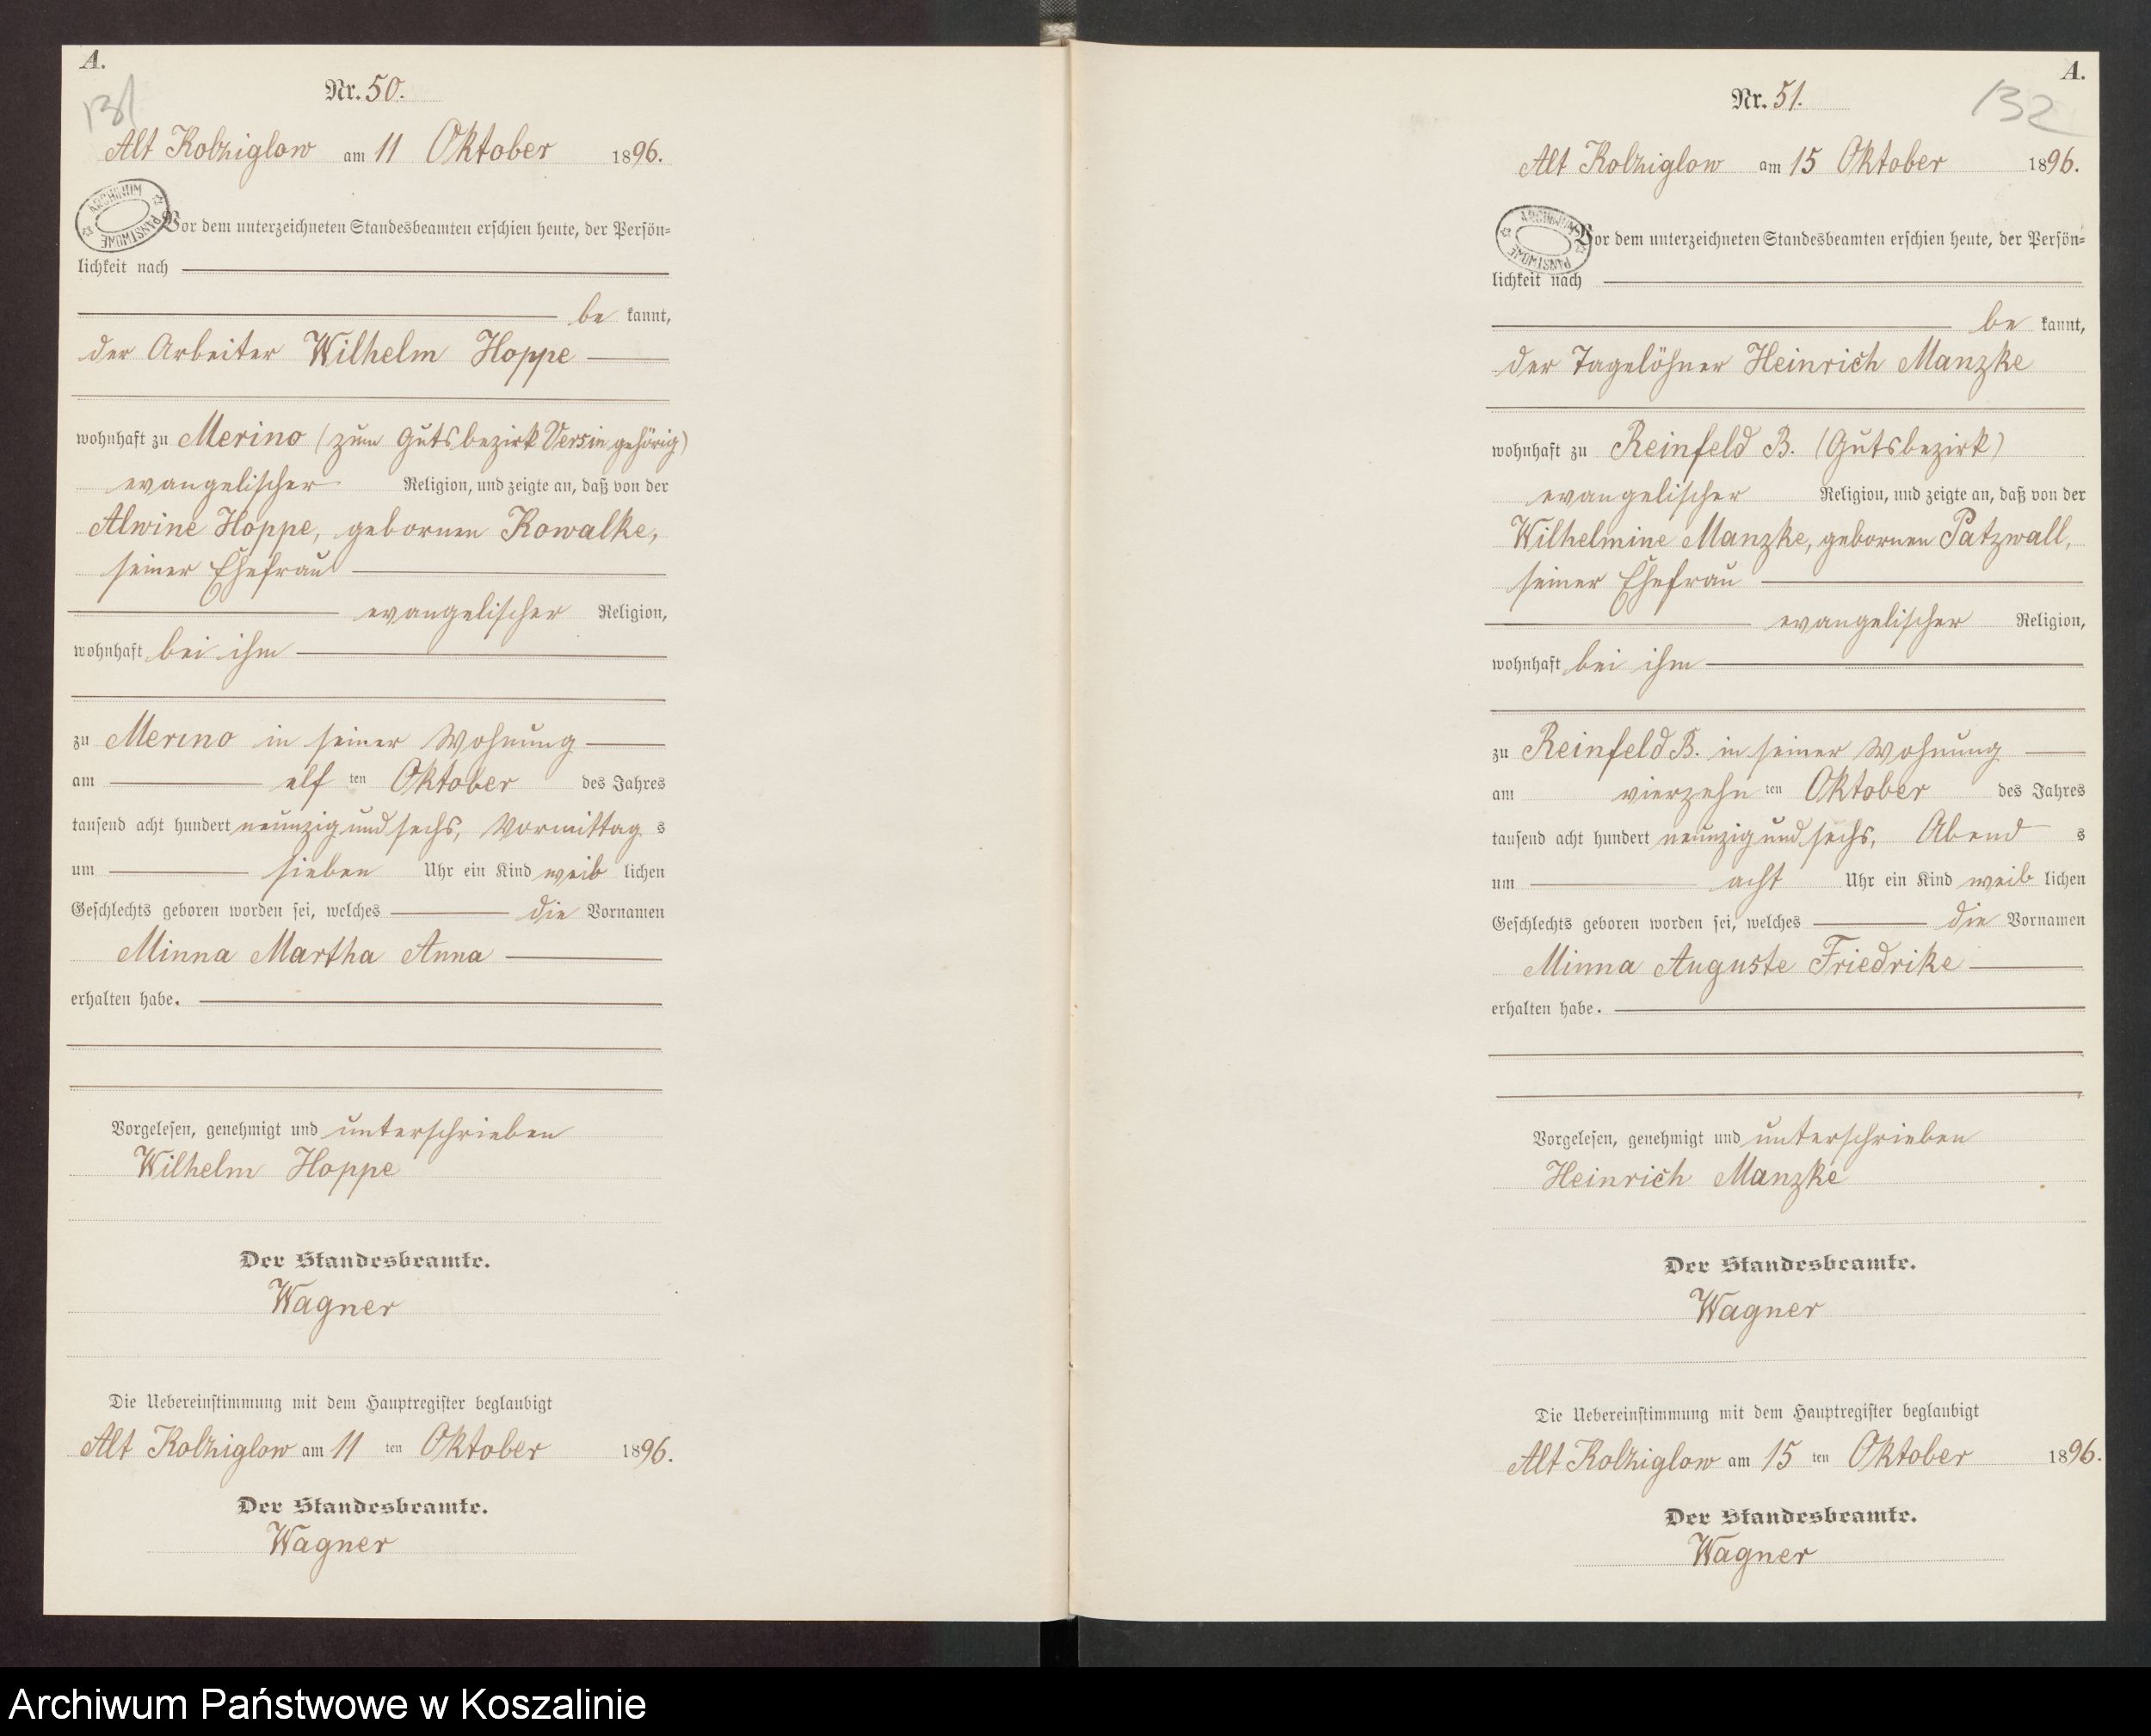 A.
131
Nr. 50.
Alt Kolziglow am 11 Oktober 1896.
ARCHIWUM PAŃSTWOWE
Vor dem unterzeichneten Standesbeamten erschien heute, der Persön=
lichkeit nach
be kannt,
der Arbeiter Wilhelm Hoppe
wohnhaft zu Merino (zum Gutsbezirk Versin gehörig)
evangelischer Religion, und zeigte an, daß von der
Alwine Hoppe, gebornen Kowalke,
seiner Ehefrau
evangelischer Religion,
wohnhaft bei ihm
zu Merino in seiner Wohnung
am elf ten Oktober des Jahres
tausend acht hundert neunzig und sechs, Vormittag s
um sieben Uhr ein Kind weib lichen
Geschlechts geboren worden sei, welches die Vornamen
Minna Martha Anna
erhalten habe.
Vorgelesen, genehmigt und unterschrieben
Wilhelm Hoppe
Der Standesbeamte.
Wagner
Die Uebereinstimmung mit dem Hauptregister beglaubigt
Alt Kolziglow am 11 ten Oktober 1896.
Der Standesbeamte.
Wagner
A.
132
Nr. 51.
Alt Kolziglow am 15 Oktober 1896.
ARCHIWUM PAŃSTWOWE
Vor dem unterzeichneten Standesbeamten erschien heute, der Persön=
lichkeit nach
be kannt,
der Tagelöhner Heinrich Manzke
wohnhaft zu Reinfeld B. (Gutsbezirk)
evangelischer Religion, und zeigte an, daß von der
Wilhelmine Manzke, gebornen Patzwall,
seiner Ehefrau
evangelischer Religion,
wohnhaft bei ihm
zu Reinfeld B. in seiner Wohnung
am vierzehn ten Oktober des Jahres
tausend acht hundert neunzig und sechs, Abend s
um acht Uhr ein Kind weib lichen
Geschlechts geboren worden sei, welches die Vornamen
Minna Auguste Friedrike
erhalten habe.
Vorgelesen, genehmigt und unterschrieben
Heinrich Manzke
Der Standesbeamte.
Wagner
Die Uebereinstimmung mit dem Hauptregister beglaubigt
Alt Kolziglow am 15 ten Oktober 1896.
Der Standesbeamte.
Wagner
Archiwum Państwowe w Koszalinie